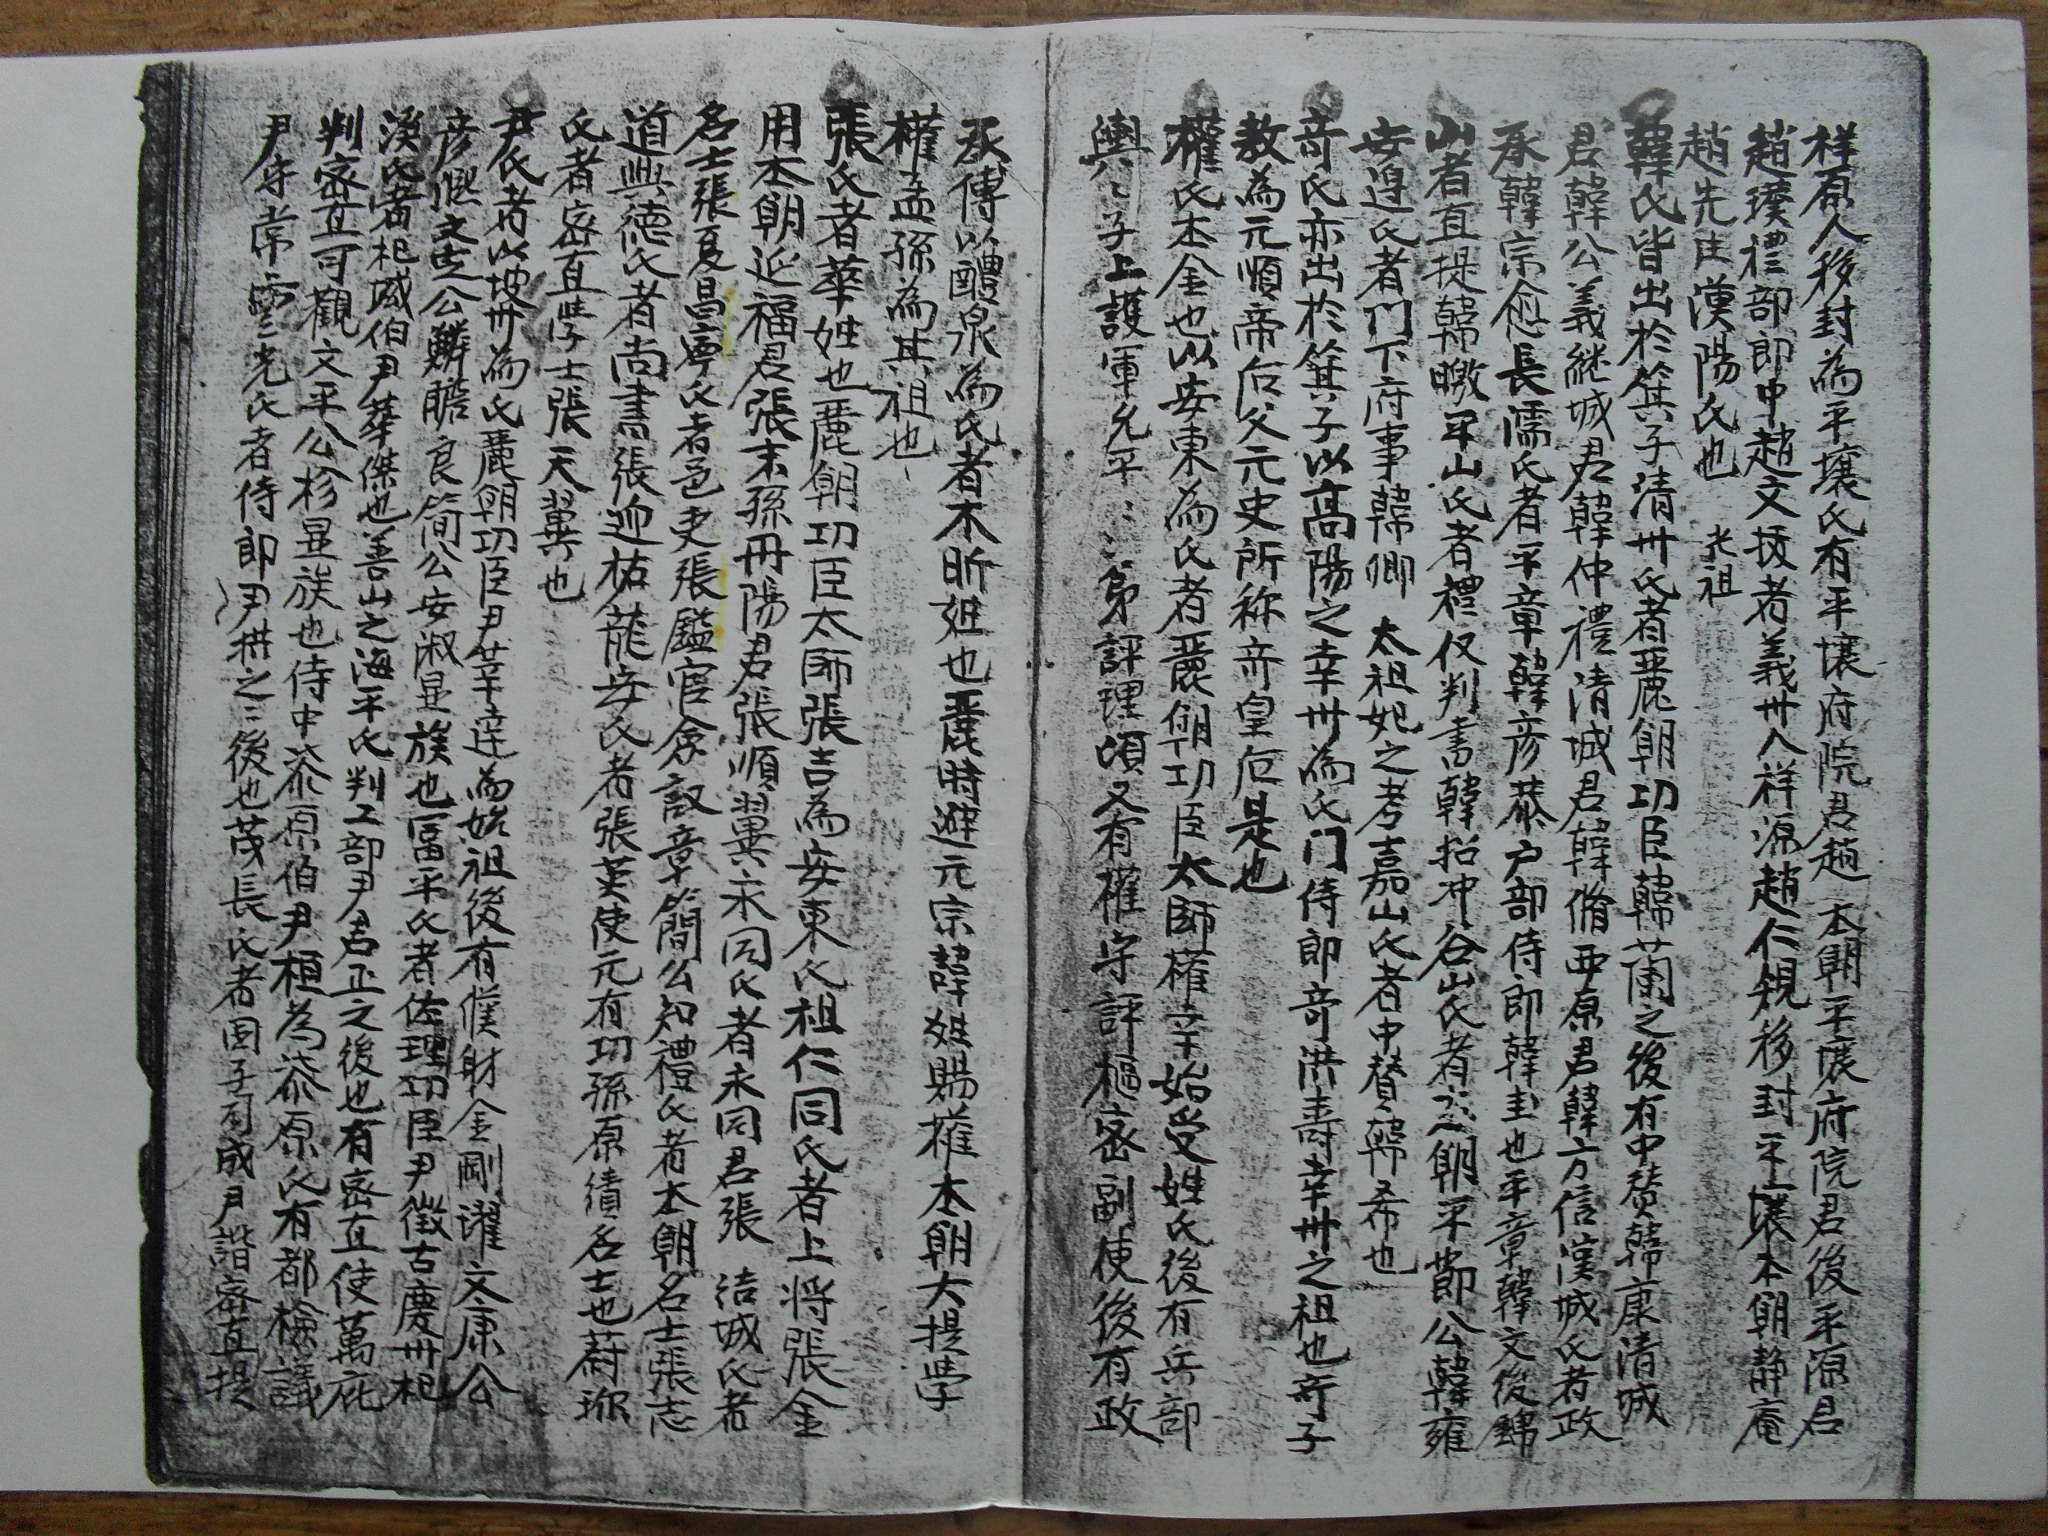 祥原人移封為平壤氏有平壤府院君趙 本朝平壤府院君後平源君
趙璞禮部郎中趙文拔者義州人祥源趙仁規移封平壤本朝靜庵
趙先生漢陽氏也 光祖
韓氏皆出於箕子清州氏者麗朝功臣韓蘭之後有中賛韓康清城
君韓公義繼城君韓仲禮清城君韓脩西原君韓方信漢城氏者政
丞韓宗愈長濡氏者平章韓彦恭户部侍郎韓圭也平章韓文後錦
山者直提韓曒平山氏者禮仪判書韓招冲谷山氏者之朝平節公韓雍
安邉氏者门下府事韓卿 太祖妃之考嘉山氏者中賛韓希也
奇氏亦出於箕子以高陽之幸州為氏门侍郎奇洪壽幸州之祖也奇子
敖為元順帝后父元史所称奇皇后是也
權氏本金也以安東為氏者麗朝功臣太師權幸始受姓氏後有兵部
輿〻子上護軍允平〻〻第評理頃又有權守評樞密副使後有政
丞傅以醴泉為氏者本昕姓也麗時避元宗韓姓賜權本朝大提学
權孟孫為其祖也
張氏者華姓也麗朝功臣太師張吉為安東氏祖仁同氏者上將張金
用本朝延福君張末孫丹陽君張順翼永同氏者永同君張 結城氏者
名士張夏昌寧氏者邑吏張鎰官僉議章簡公知禮氏者本朝名士張志
道興德氏者尚書張迎祐龍安氏者張英使元有功孫原績名士也蔚珍
氏者密直学士張天翼也
尹氏者以坡州為氏麗朝功臣尹莘達為始祖後有僕射金剛濯文康公
彦頤文定公鱗瞻良简公安淑显族也富平氏者佐理功臣尹徵古慶州杞
溪氏者杞城伯尹莘傑也善山之海平氏判工部尹君正之後也有密直使萬庇
判密直可觀文平公柊显族也侍中㓒原伯尹桓為㓒原氏有都檢議
尹守常雲光氏者侍郎尹拱之〻後也茂長氏者国子司成尹諧密直提